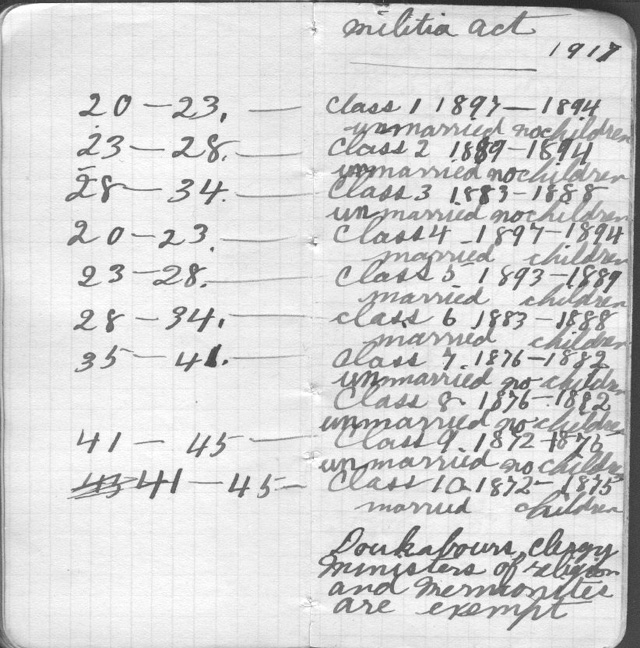 militia act
1917
20 — 23. — Class 1 1897 — 1894
unmarried no children
23 — 28. — Class 2 1889 — 1894
unmarried no children
28 — 34. — Class 3 1883 — 1888
unmarried no children
20 — 23. — Class 4 1897 — 1894
married children
23 — 28. — Class 5 1893 — 1889
married children
28 — 34. — class 6 1883 — 1888
married children
35 — 41. — Class 7. 1876 — 1882
unmarried no children
Class 8 1876 — 1882
unmarried no children
41 — 45 — Class 9 1872 — 1875
unmarried no children
43 41 — 45 — Class 10 1872 — 1875
married children
Doukabours, clergy
ministers of religion
and mennonites
are exempt